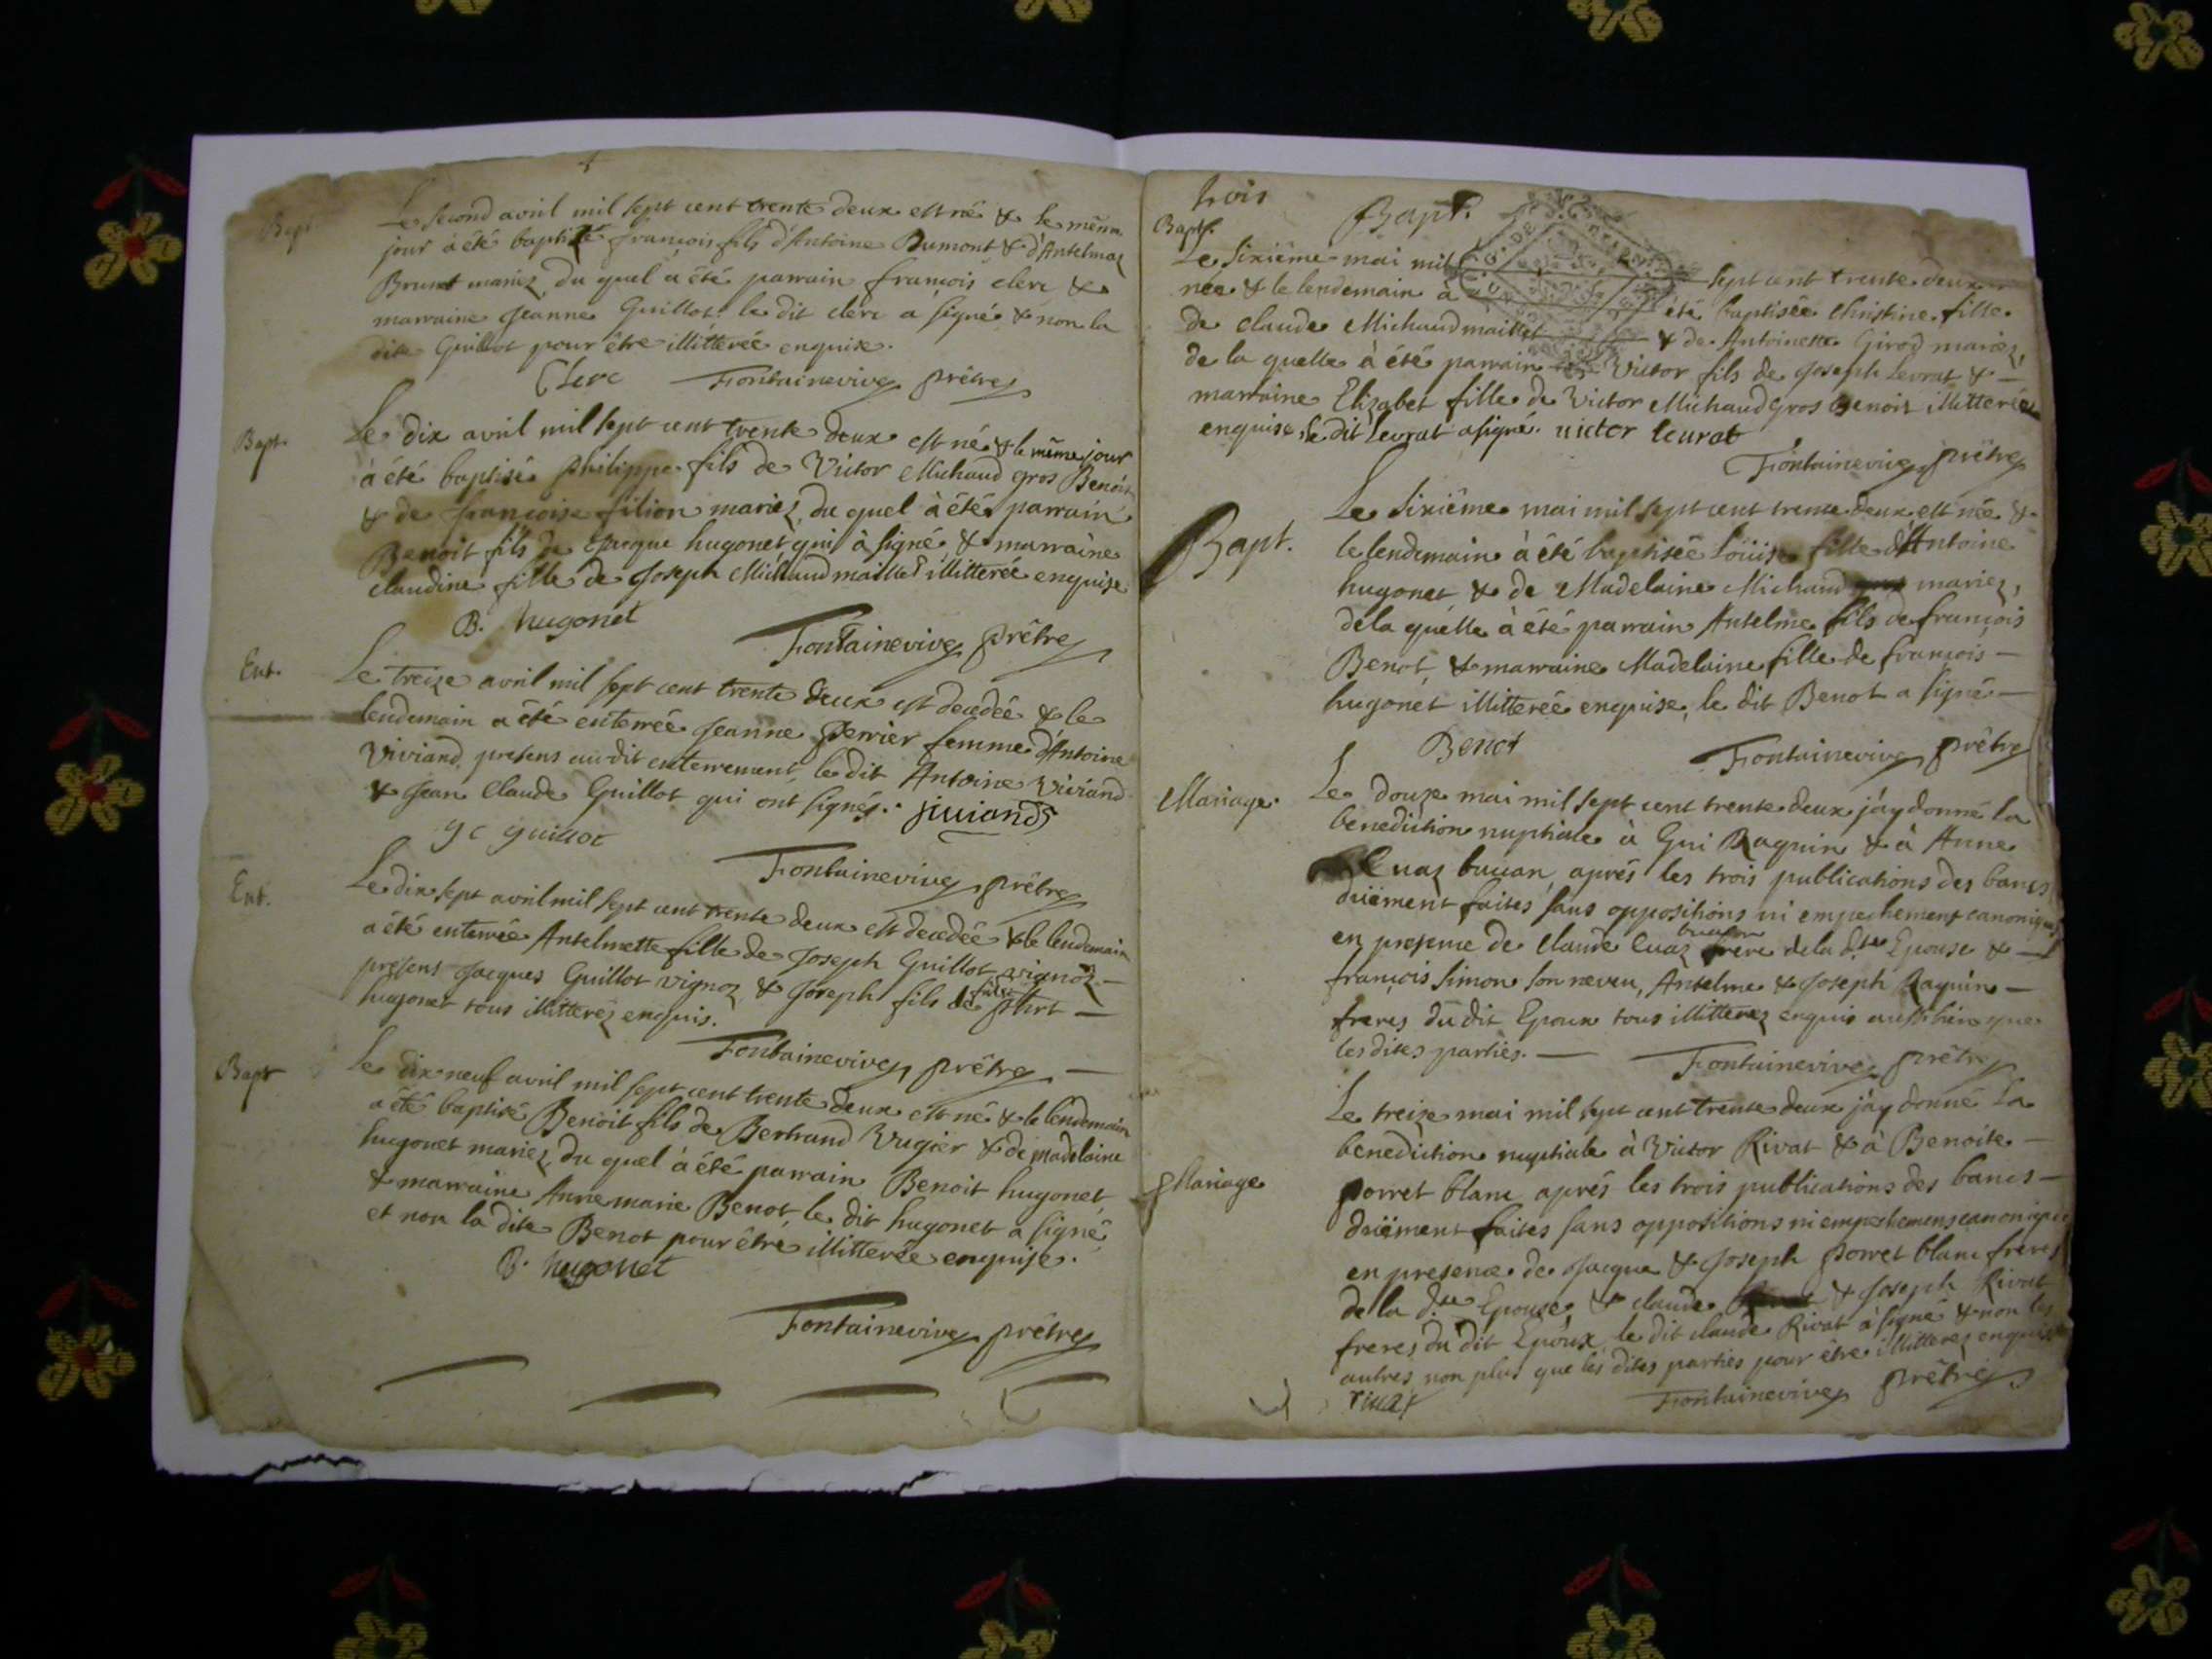 Bapt.
Le second avril mil sept cent trente deux est né & le même
jour à été baptisé françois fils d'Antoine Dumont & d'Antelmaz
Brunet mariez, du quel a été parrain françois clerc &
marraine Jeanne Guillot. le dit clerc a signé & non la
dite Guillot pour être illitterée enquise.
Clerc Fontainevive prêtre
Bapt.
Le dix avril mil sept cent trente deux est né & le même jour
à été baptisé philippe fils de Victor Michaud gros Benoit
& de françoise filion mariez, du quel à été parrain
Benoit fils de Jacque hugonet qui à signé, & marraine
claudine fille de Joseph Michaud maillet illitterée enquise
B. hugonet
Fontainevive prêtre
Ent.
Le treize avril mil sept cent trente deux est decedée & le
lendemain a été enterrée Jeanne perrier femme d'Antoine
Viviand, presens audit enterrement, le dit Antoine Viviand
& Jean Claude Guillot qui ont signés. Jiuiands
gc guillot
Fontainevive prêtre
Ent.
Le dix sept avril mil sept cent trente deux est decedée & le lendemain
a été enterrée Antelmette fille de Joseph Guillot vignoz
presens Jacques Guillot vignoz & Joseph fils de
hugonet tous illitterez enquis.
Fontainevive prêtre
Bapt
Le dix neuf avril mil sept cent trente deux est né & le lendemain
a été baptisé Benoit fils de Bertrand Vugier & de madelaine
hugonet mariez, du quel à été parrain Benoit hugonet,
& marraine Anne marie Benot, le dit hugonet a signé
et non la dite Benot pour être illitterée enquise.
B. hugonet
Fontainevive prêtre
trois
Bapt.
Bapt.
Le sixième mai mil sept cent trente deux
née & le lendemain à été baptisée christine fille
de claude Michaud maillet & de Antoinette Girod mariez,
de la quelle à été parrain Victor fils de Joseph Levrat &
marraine Elizabet fille de Victor Michaud gros Benoit illitterée
enquise, le dit Levrat a signé. victor leurat
Fontainevive prêtre
Bapt.
Le sixième mai mil sept cent trente deux est née &
le lendemain à été baptisée Loüise fille d'Antoine
hugonet & de Madelaine Michaud mariez,
de la quelle à été parrain Antelme fils de françois
Benot, & marraine Madelaine fille de françois
hugonet illitterée enquise, le dit Benot a signé
Benot
Fontainevive prêtre
Mariage.
Le douze mai mil sept cent trente deux j'ay donné la
benediction nuptiale à Gui Raquin & à Anne
Cuaz buuan, aprés les trois publications des bancs
duëment faites sans oppositions ni empechement canoniques
en presence de claude Cuaz buuan frere de la d.te Epouse &
françois Simon son neveu, Antelme & Joseph Raquin
freres du dit Epoux tous illitterez enquis aussi bien que
les dites parties.
Fontainevive prêtre
Mariage
Le treize mai mil sept cent trente deux j'ay donné la
benediction nuptiale à Victor Rivat & à Benoite
porret blanc, aprés les trois publications des bancs
duëment faites sans oppositions ni empechemens canoniques
en presence de Jacque & Joseph porret blanc freres
de la d.te Epouse, & claude & Joseph Rivat
freres du dit Epoux, le dit claude Rivat à signé & non les
autres non plus que les dites parties pour être illitterez enquises
riuat
Fontainevive prêtre